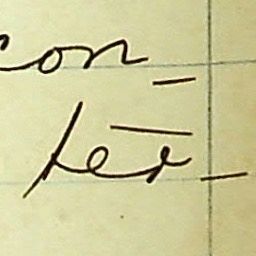 con-
ter-